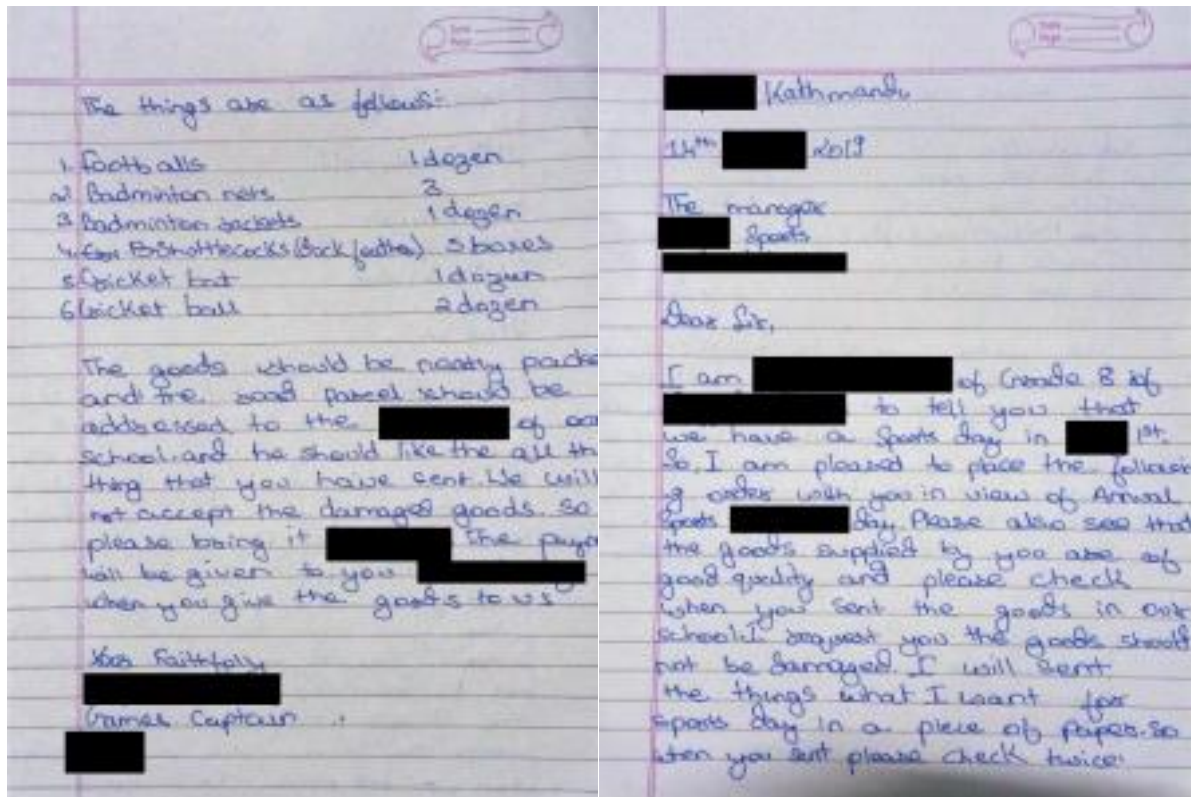 The things are as follows:-
1. Footballs 1 dozen
2. Badminton nets 3
3. Badminton rackets 1 dozen
4. Shottlecocks (Dock feather) 5 boxes
5 Cricket bat 1 dozen
6 Cricket ball 2 dozen
The goods should be neatly packe
and the parcel should be
addressed to the of our
school. and he should like the all th
thing that you have sent. We will
not accept the damaged goods. So
please bring it The
will be given to you
when you give the goods to us
Faithfuly
Games Captain
Kathmandu
14th 2019
The manager
Sports
Dear Sir,
I am of Grade 8 of
to tell you that
we have a sports day in 1st.
So, I am pleased to place the followin
g order with you in view of Annual
sports day. Please also see that
the goods supplied by you are of
good quality and please check
when you sent the goods in our
school. I request you the goods should
not be damaged. I will sent
the things what I want for
sports day in a piece of paper. So
when you sent please check twice.